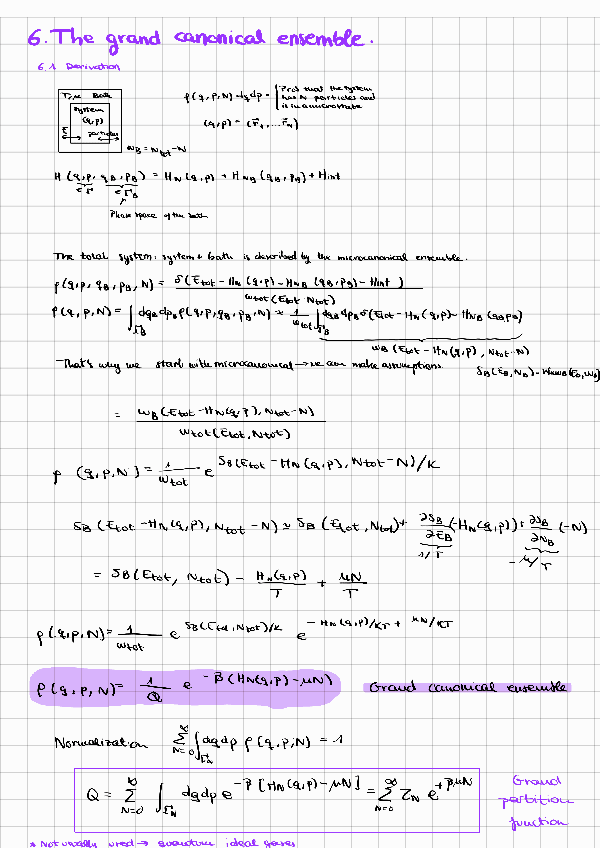 6. The grand canonical ensemble.
6.1 Derivation
The Bath
System
(q,p)
E
particles
N_B = N_tot - N
ρ(q,p,N) dqdp = Prob that the system has N particles and is in a microstate
(q,p) = (r⃗_1, ... r⃗_N)
H(q,p, q_B, p_B) = H_N(q,p) + H_{N_B}(q_B, p_B) + H_int
∈ Γ ∈ Γ_B
Phase space of the bath
The total system: system + bath is described by the microcanonical ensemble.
ρ(q,p, q_B, p_B, N) = δ(E_tot - H_N(q,p) - H_{N_B}(q_B, p_B) - H_int) / ω_tot(E_tot N_tot)
ρ(q,p,N) = ∫_{Γ_B} dq_B dp_B ρ(q,p,q_B,p_B,N) ≈ 1/ω_tot ∫_{Γ_B} dq_B dp_B δ(E_tot - H_N(q,p) - H_{N_B}(q_B p_B))
ω_B(E_tot - H_N(q,p), N_tot - N)
That's why we start with microcanonical → we can make assumptions.
= ω_B(E_tot - H_N(q,p), N_tot - N) / ω_tot(E_tot, N_tot)
ρ(q,p,N) = 1/ω_tot e^{S_B(E_tot - H_N(q,p), N_tot - N)/K}
S_B(E_tot - H_N(q,p), N_tot - N) ≈ S_B(E_tot, N_tot) + ∂S_B/∂E_B (-H_N(q,p)) + ∂S_B/∂N_B (-N)
1/T -μ/T
= S_B(E_tot, N_tot) - H_N(q,p)/T + μN/T
ρ(q,p,N) = 1/ω_tot e^{S_B(E_tot, N_tot)/K} e^{-H_N(q,p)/KT + μN/KT}
ρ(q,p,N) = 1/Q e^{-β(H_N(q,p) - μN)} Grand canonical ensemble
Normalization ∑_{N=0}^∞ ∫_{Γ_N} dqdp ρ(q,p,N) = 1
Q = ∑_{N=0}^∞ ∫_{Γ_N} dqdp e^{-β[H_N(q,p) - μN]} = ∑_{N=0}^∞ Z_N e^{+βμN}
Grand
partition
function
* Not usually used → quantum ideal gases